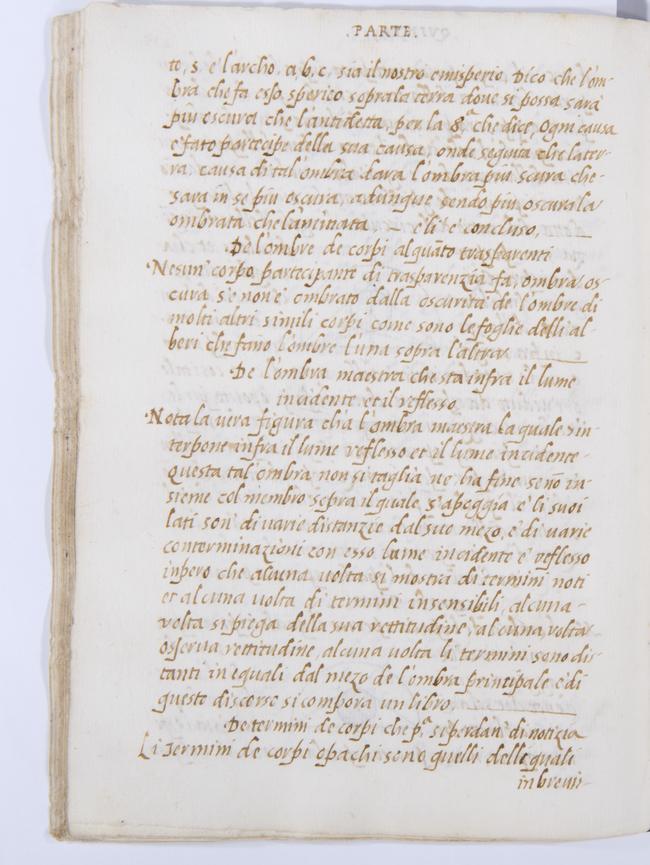 .PARTE.
to, s. e l'archo. a, b, c, sia il nostro emisperio. Dico che l'om-
bra che fa esso sperico sopra la terra dove si possa sara
piu oscura che l'antidetta, per la 8.ª che dice, Ogni causa
e fato partecipe della sua causa, onde seguita che la ter-
ra, causa di tal' ombra dara l'ombra piu scura che
sara in se piu oscura, adunque sendo piu oscura la
ombrata che l'aneinata e li è concluso,
De l'ombre de corpi alquāto trasparenti
Nesun' corpo partecipante di trasparenzia fa, ombra os-
cura s'e non e' ombrato dalla oscurita de l'ombre di
molti altri simili corpi come sono le foglie delli al-
beri che fano l'ombre l'una sopra l'altra.
De l'ombra maestra che sta infra il lume
incidente, et il reflesso
Nota la vera figura ch'a l'ombra maestra la quale s'in-
terpone infra il lume reflesso et il lume incidente
questa tal' ombra non si taglia ne ha fine senō in-
sieme col membro sopra il quale s'apoggia e' li suoi
lati son' di varie distanzie dal suo mezo, e' di varie
conterminazioni con esso lume incidente e' reflesso
inpero che alcuna volta si mostra di termini noti
et alcuna volta di termini insensibili, alcuna
volta si piega della sua rettitudine, alcuna volta
osserva rettitudine, alcuna volta li termini sono dis
tanti inequali dal mezo de l'ombra principale e di
questo discorso si compora un libro.
De termini de corpi che pª. si perdan' di notizia
Li Termini de corpi opachi sono quelli delle quali
in brevi-